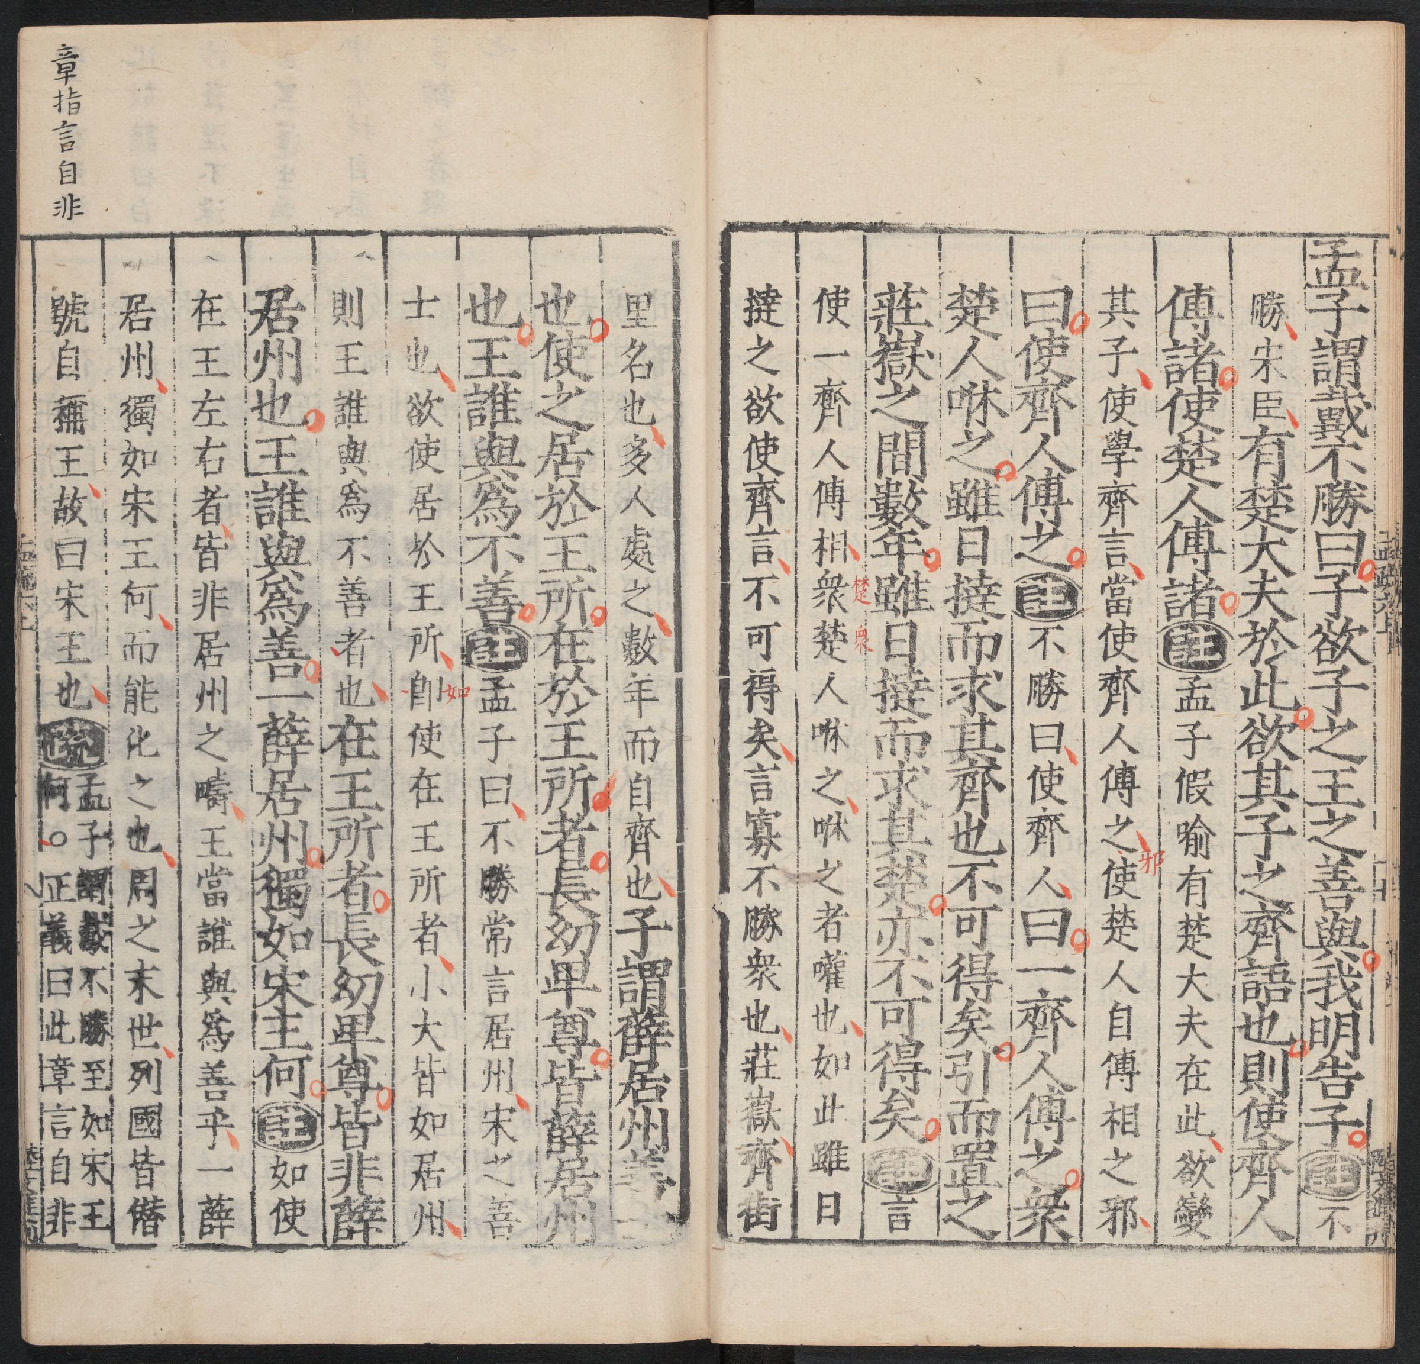 孟子謂戴不勝曰子欲子之王之善與我明告子註不
勝宋臣有楚大夫於此欲其子之齊語也則使齊人
傅諸使楚人傅諸註孟子假喻有楚大夫在此欲變
其子使學齊言當使齊人傅之使楚人自傅相之邪
邪
曰使齊人傅之註不勝曰使齊人曰一齊人傅之衆
楚人咻之雖日撻而求其齊也不可得矣引而置之
莊嶽之間數年雖日撻而求其楚亦不可得矣註言
楚衆
使一齊人傅相衆楚人咻之咻之者嚾也如此雖日
撻之欲使齊言不可得矣言寡不勝衆也莊嶽齊街
里名也多人處之數年而自齊也子謂薛居州善士
也使之居於王所在於王所者長幼卑尊皆薛居州
也王誰與爲不善註孟子曰不勝常言居州宋之善
如
士也欲使居於王所卽使在王所者小大皆如居州
則王誰與爲不善者也在王所者長幼卑尊皆非薛
居州也王誰與爲善一薛居州獨如宋王何註如使
在王左右者皆非居州之疇王當誰與爲善乎一薛
居州獨如宋王何而能化之也周之末世列國皆僭
號自稱王故曰宋王也疏孟子謂戴不勝至如宋王
何○正義曰此章言自非
章指言自非